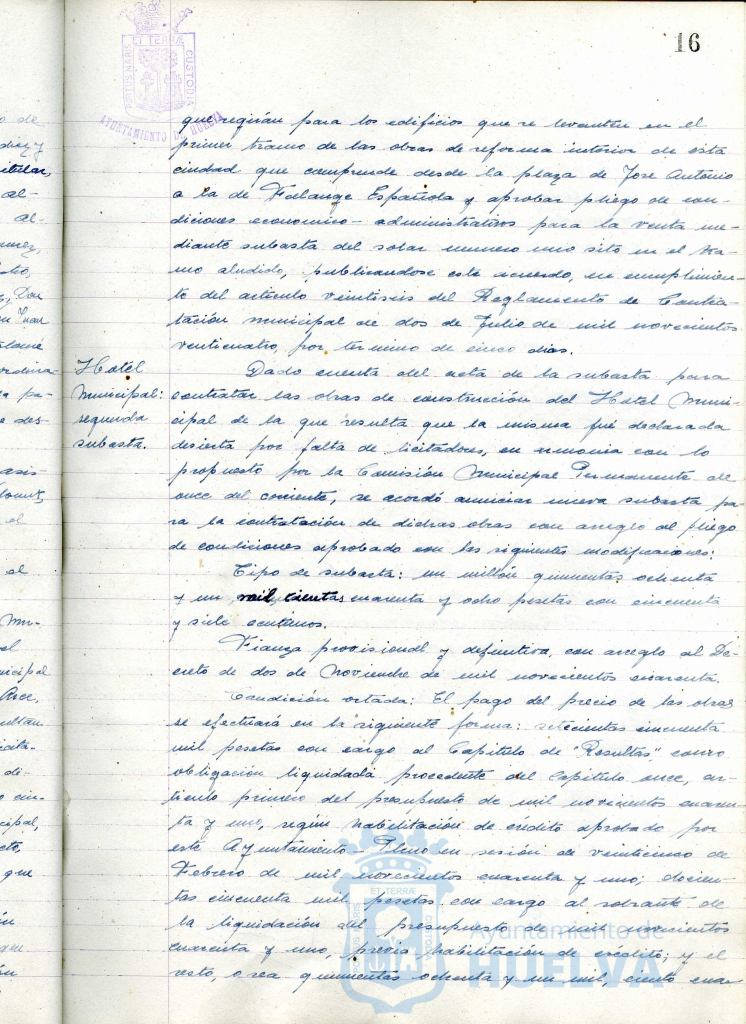 16
PORTUS MARIS ET TERRÆ CUSTODIA
AYUNTAMIENTO DE HUELVA
que regirán para los edificios que se levanten en el
primer tramo de las obras de reforma interior de esta
ciudad que comprende desde la plaza de Jose Antonio
a la de Falange Española y aprobar pliego de con-
diciones economico-administrativas para la venta me-
diante subasta del solar numero uno sito en el tra-
mo aludido, publicandose este acuerdo, en cumplimien-
to del articulo veintiseis del Reglamento de Contra-
tación municipal de dos de Julio de mil novecientos
venticuatro, por termino de cinco dias.
Hotel
Municipal:
segunda
subasta.
Dada cuenta del acta de la subasta para
contratar las obras de construcción del Hotel Muni-
cipal de la que resulta que la misma fué declarada
desierta por falta de licitadores, en armonia con lo
propuesto por la Comisión Municipal Permanente de
once del corriente, se acordó anunciar nueva subasta pa-
ra la contratación de dichas obras con arreglo al pliego
de condiciones aprobado con las siguientes modificaciones:
Tipo de subasta: un millón quinientas ochenta
y un mil cientas cuarenta y ocho pesetas con cincuenta
y siete centimos.
Fianza provisional y definitiva, con arreglo al De-
creto de dos de Noviembre de mil novecientos cuarenta.
Condición octada: El pago del precio de las obras
se efectuará en la siguiente forma: setecientas cincuenta
mil pesetas con cargo al Capitulo de "Resultas" como
obligación liquidada procedente del Capitulo once, ar-
ticulo primero del presupuesto de mil novecientos cuaren-
ta y uno, según habilitación de crédito aprobado por
este Ayuntamiento-Pleno en sesión de veinticinco de
Febrero de mil novecientos cuarenta y uno; docien-
tas cincuenta mil pesetas con cargo al sobrante de
la liquidación del presupuesto de mil novecientos
cuarenta y uno, previa habilitación de crédito; y el
resto, o sea quinientas ochenta y un mil, ciento cuar
Ayuntamiento de
HUELVA